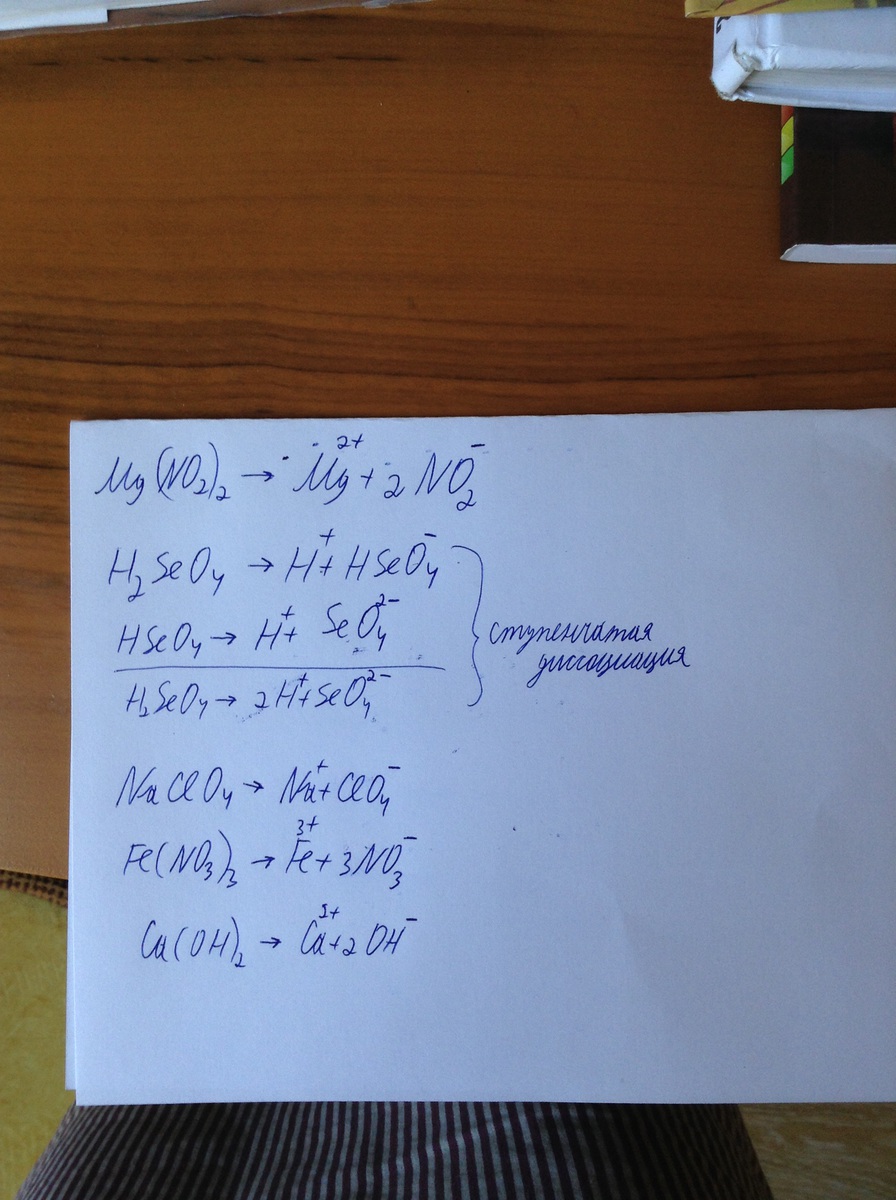 Mg(NO₂)₂ → Mg²⁺ + 2NO₂⁻
H₂SeO₄ → H⁺ + HSeO₄⁻
HSeO₄ → H⁺ + SeO₄²⁻
H₂SeO₄ → 2H⁺ + SeO₄²⁻
ступенчатая
диссоциация
NaClO₄ → Na⁺ + ClO₄⁻
Fe(NO₃)₃ → Fe³⁺ + 3NO₃⁻
Ca(OH)₂ → Ca²⁺ + 2OH⁻